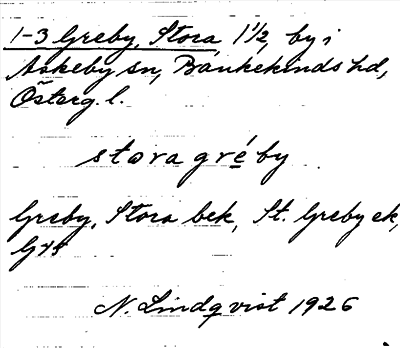 1-3 Greby, Stora, 1 1/2, by i
Askeby sn, Bankekinds hd,
Österg. l.
stora gréby
Greby, Stora bek, St. Greby ek,
N. Lindqvist 1926